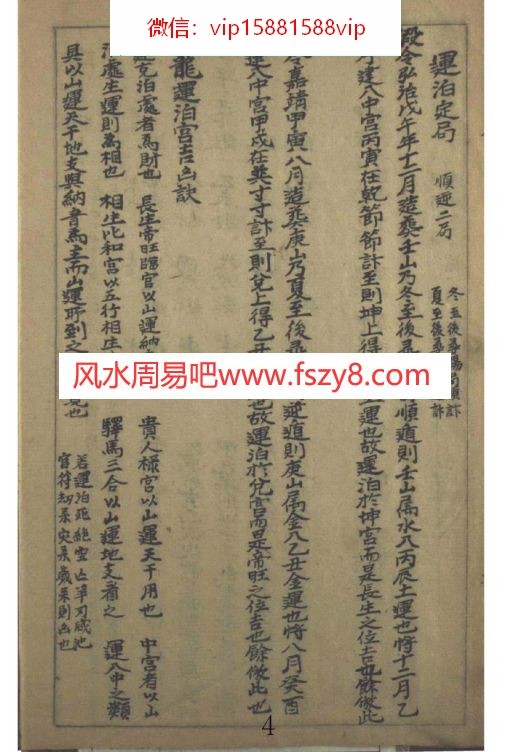 微信：vip15881588vip
運泊定局 順逆二局
冬至後
夏至後
令弘治戊午年十二月造葬壬山乃冬至後 順遁則壬山属水八丙辰土運也将十二月乙
建八中宮丙寅在乾節節計至則坤上得 運也故運泊於坤宮而是長生之位吉也餘倣此
嘉靖甲寅八月造葬庚山乃夏至後 逆遁則庚山属金八乙丑金運也将八月癸酉
建八中宮甲戌在 寸寸計至則兌上得乙丑 也故運泊於兌宮而是帝旺之位吉也餘倣此也
龍運泊宮吉凶訣
克泊處者為財也 長生帝旺臨官以山運納 貴人禄宮以山運天干用也 中宮者以山
處生運則為相也 相生比和宮以五行相生 驛馬三合以山運地支看之 運八中之類
具以山運天干地支與納音為主而山運所到之 也
若運泊死絶空亡羊刃咸池
官符劫柔灾柔歲柔則凶也
风水周易吧www.fszy8.com
4